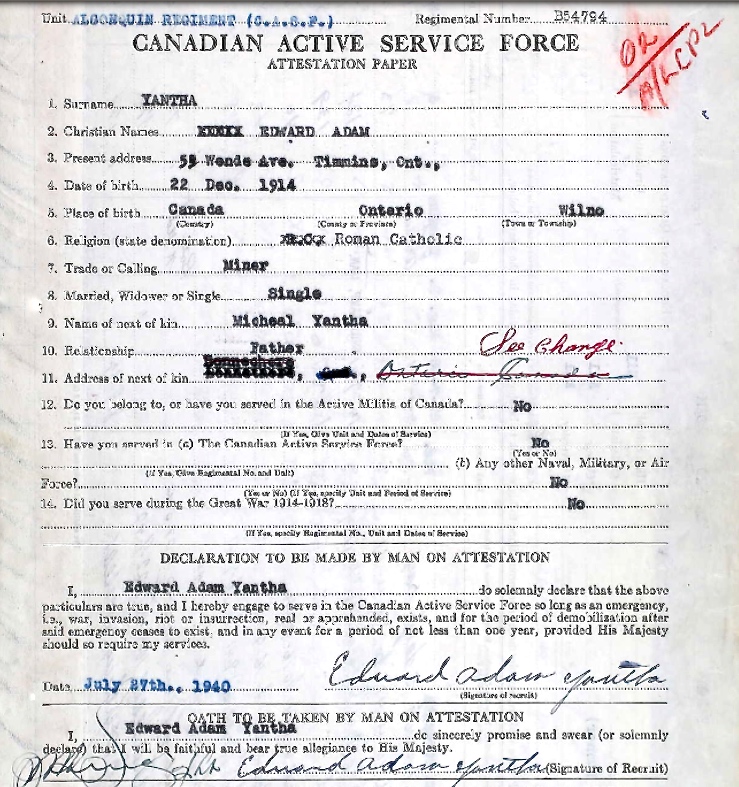 Unit ALGONQUIN REGIMENT (C.A.S.F.) Regimental Number B54794
CANADIAN ACTIVE SERVICE FORCE
ATTESTATION PAPER
OR
A/LCPL
1. Surname YANTHA
2. Christian Names EDWARD ADAM
3. Present address 55 Wende Ave. Timmins, Ont.,
4. Date of birth 22 Dec. 1914
5. Place of birth Canada Ontario Wilno
(Country) (County or Province) (Town or Township)
6. Religion (state denomination) Roman Catholic
7. Trade or Calling Miner
8. Married, Widower or Single Single
9. Name of next of kin Micheal Yantha
10. Relationship Father See Change
11. Address of next of kin Ontario Canada
12. Do you belong to, or have you served in the Active Militia of Canada? No
(If Yes, Give Unit and Dates of Service)
13. Have you served in (a) The Canadian Active Service Force? No
(Yes or No)
(b) Any other Naval, Military, or Air
(If Yes, Give Regimental No. and Unit)
Force? No
(Yes or No) (If Yes, specify Unit and Period of Service)
14. Did you serve during the Great War 1914-1918? No
(If Yes, specify Regimental No., Unit and Dates of Service)
DECLARATION TO BE MADE BY MAN ON ATTESTATION
I, Edward Adam Yantha do solemnly declare that the above
particulars are true, and I hereby engage to serve in the Canadian Active Service Force so long as an emergency,
i.e., war, invasion, riot or insurrection, real or apprehended, exists, and for the period of demobilization after
said emergency ceases to exist, and in any event for a period of not less than one year, provided His Majesty
should so require my services.
Eduard Adam Yantha
Date July 27th., 1940
(Signature of Recruit)
OATH TO BE TAKEN BY MAN ON ATTESTATION
I, Edward Adam Yantha do sincerely promise and swear (or solemnly
declare) that I will be faithful and bear true allegiance to His Majesty.
Eduard Adam Yantha (Signature of Recruit)